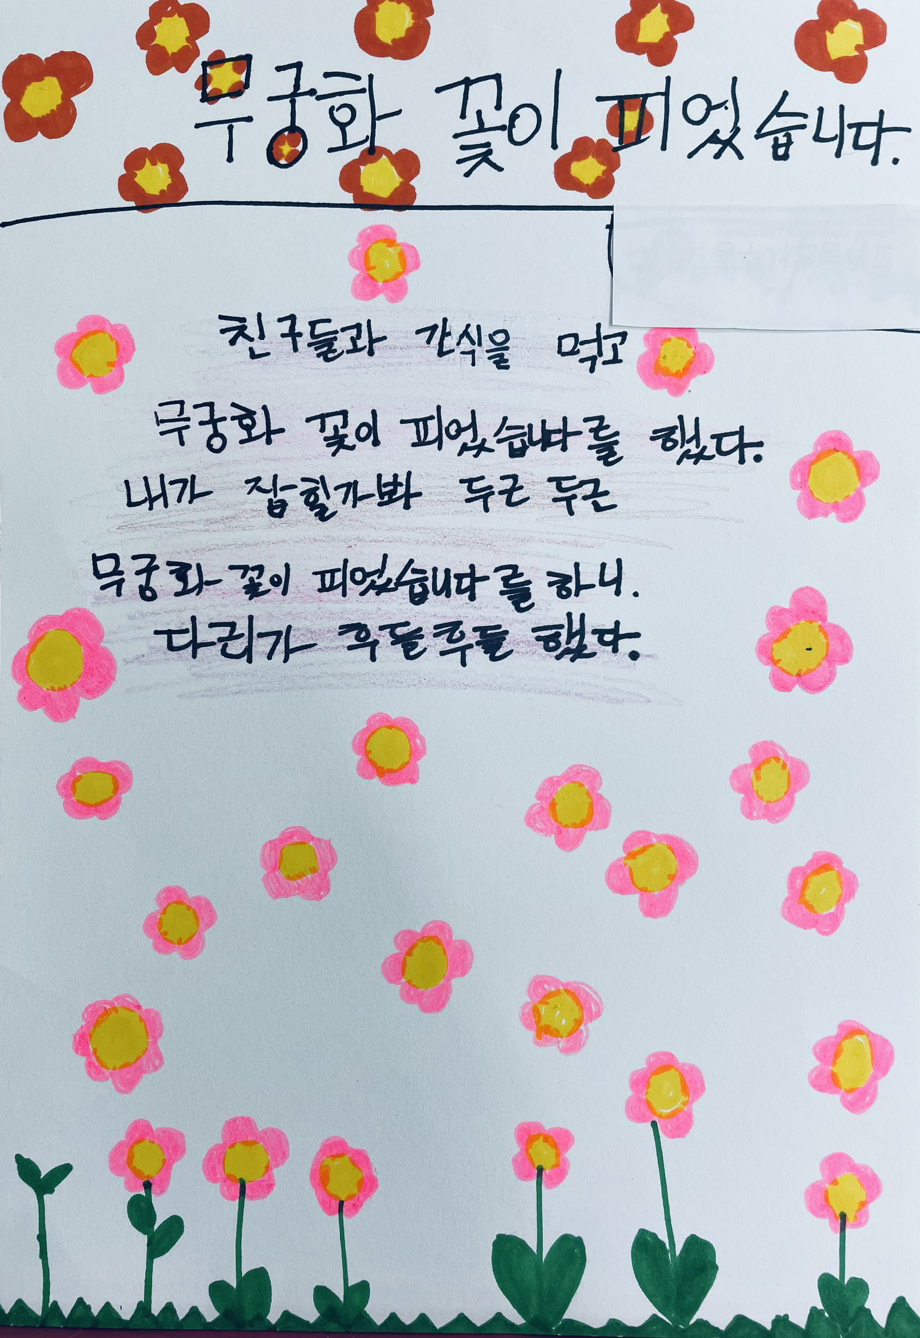 무궁화 꽃이 피었습니다.
친구들과 간식을 먹고
무궁화 꽃이 피었습니다를 했다.
내가 잡힐가봐 두근 두근
무궁화 꽃이 피었습니다를 하니.
다리가 후들후들 했다.